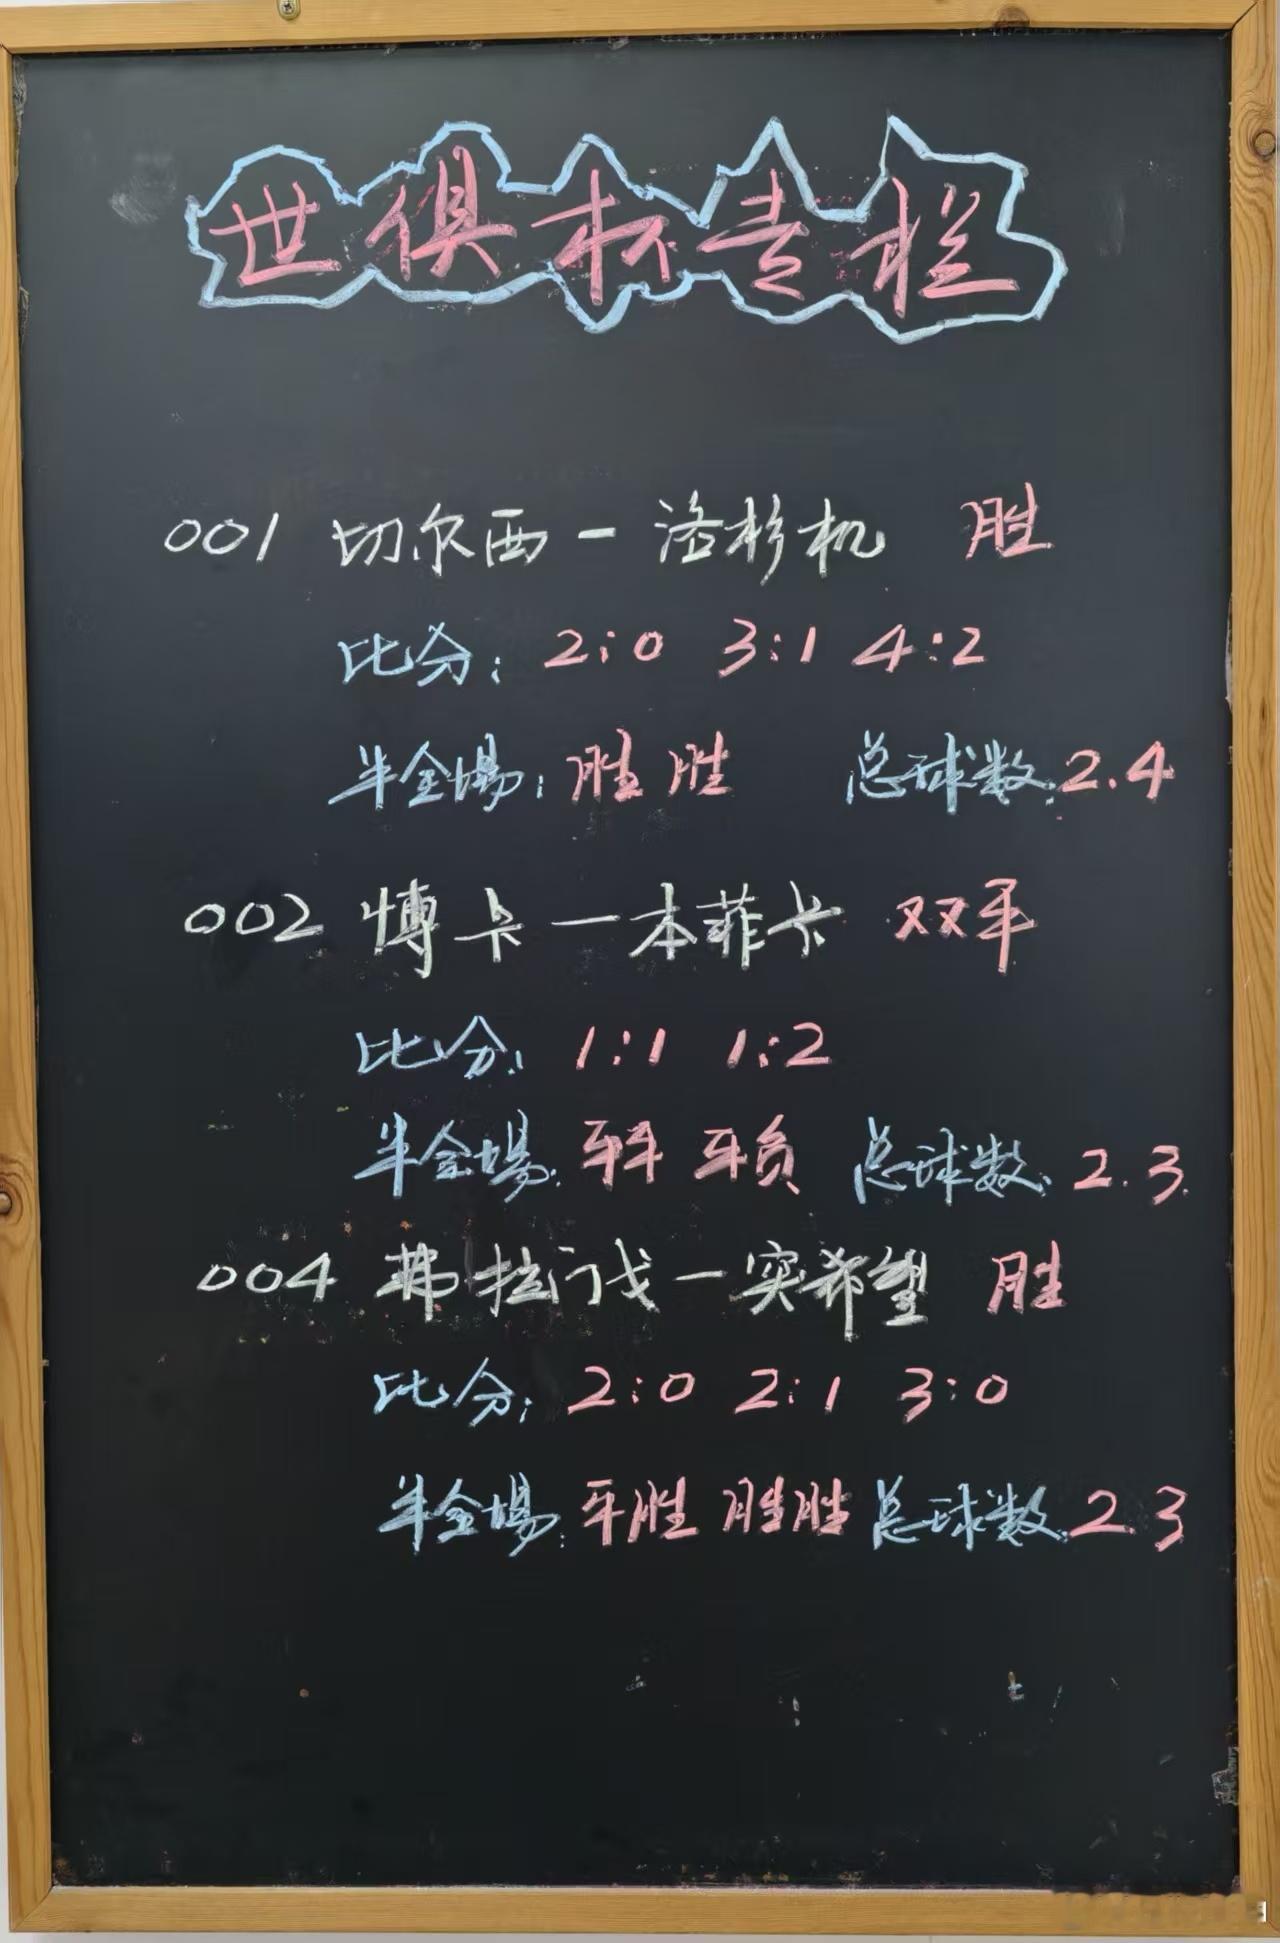 世俱杯专栏
001 切尔西-洛杉机 胜
比分: 2:0 3:1 4:2
半全場: 胜胜 总球数:2.4
002 博卡-本菲卡 双平
比分: 1:1 1:2
半全場: 平平 平负 总球数: 2.3.
004 弗拉门戈-实希望 胜
比分: 2:0 2:1 3:0
半全場: 平胜 胜胜 总球数:2.3